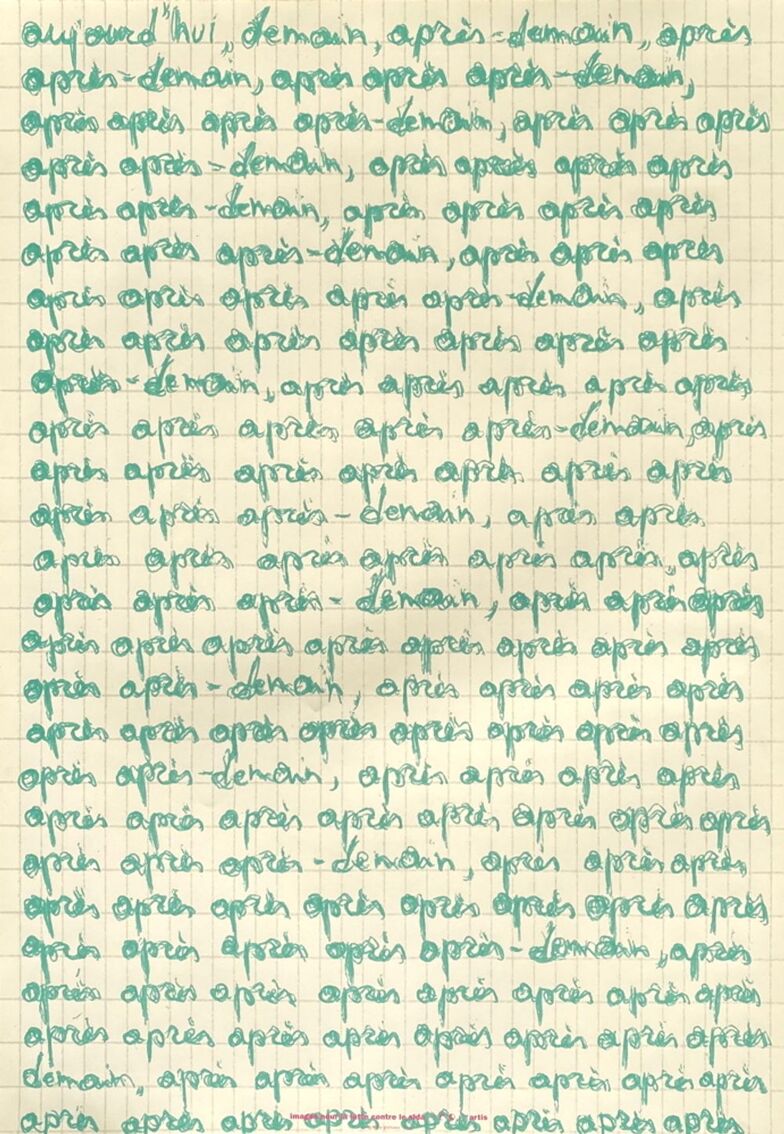 aujourd'hui, demain, après-demain, après
après-demain, après après après-demain,
après après après après-demain, après après après
après après-demain, après après après après
après après-demain, après après après après
après après après-demain, après après après
après après après après après-demain, après
après après après après après après après
après-demain, après après après après après
après après après après après-demain, après
après après après après après après après
après après après-demain, après après
après après après après après après après
après après après-demain, après après après
après après après après après après après après
après après-demain, après après après après
après après après après après après après après
après après-demain, après après après après
après après après après après après après après
après après après-demain, après après après
après après après après après après après après
après après après après après-demain, après
après après après après après après après après
après après après après après après après après
demain, après après après après après après après
après après après après après après après
images pour la lutte contre le sida artis